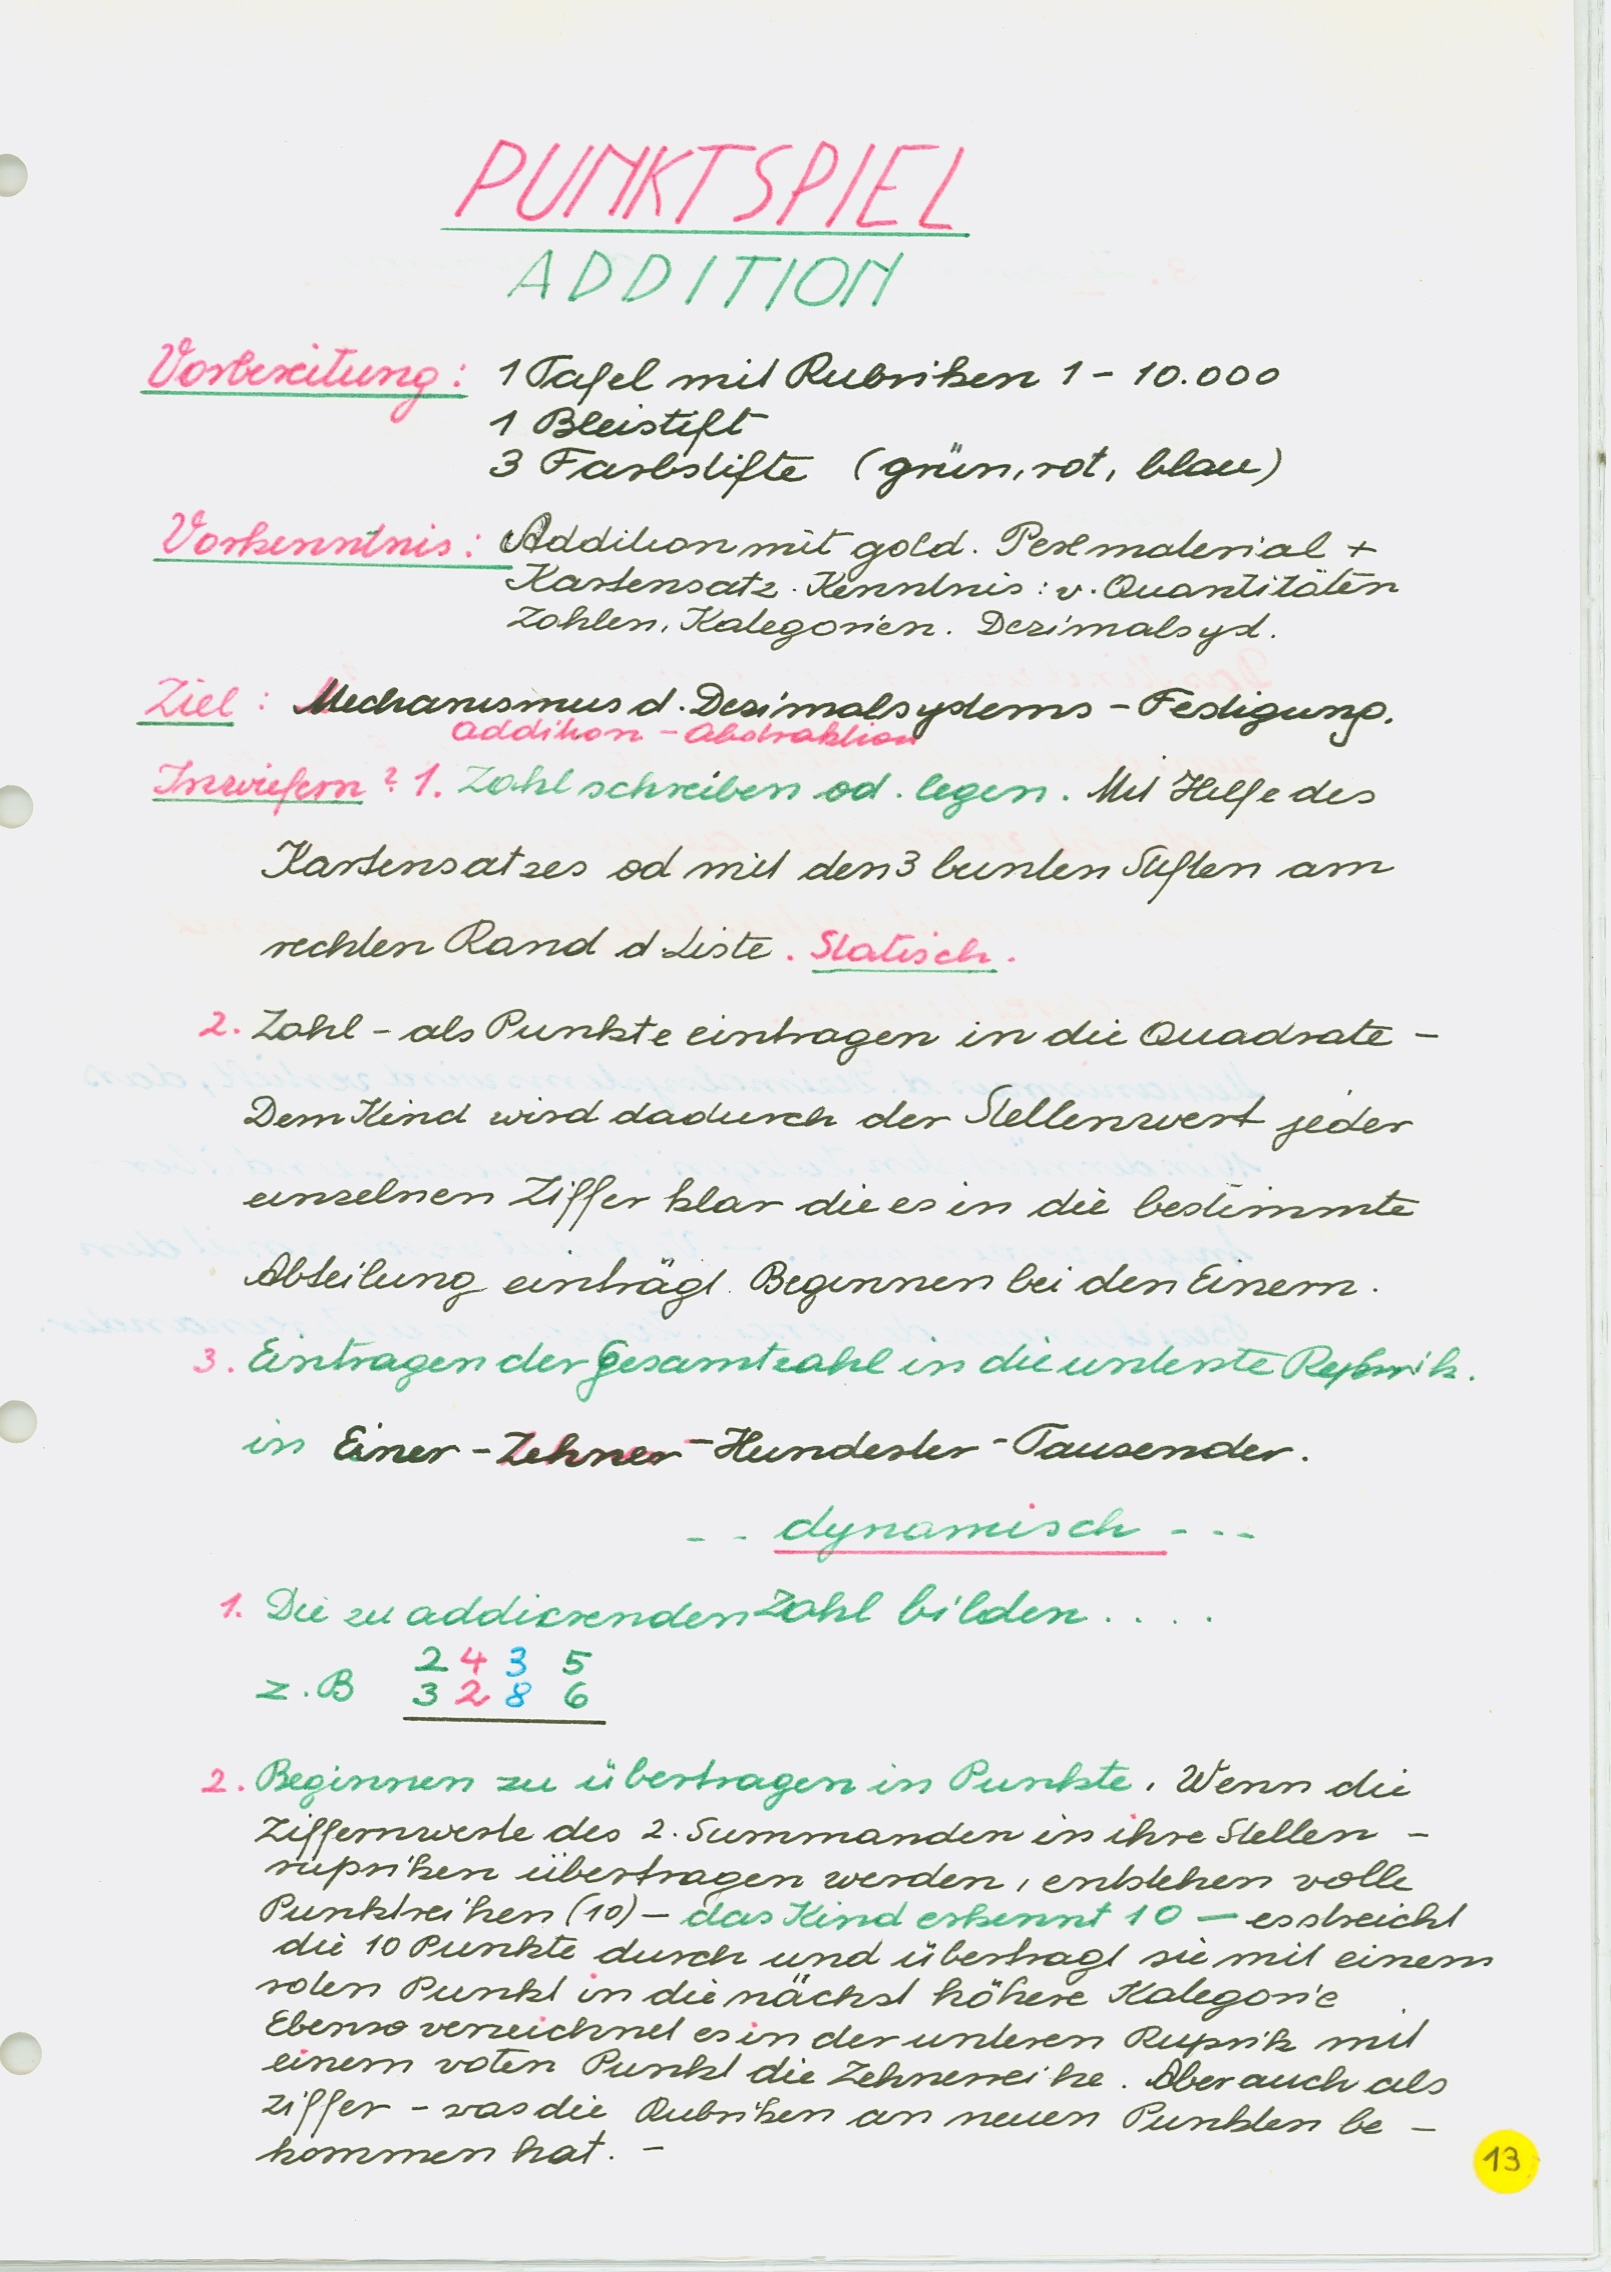 PUNKTSPIEL
ADDITION
Vorbereitung: 1 Tafel mit Rubriken 1 - 10.000
1 Bleistift
3 Farbstifte (grün, rot, blau)
Vorkenntnis: Addition mit gold. Perlmaterial +
Kartensatz. Kenntnis: v. Quantitäten
Zahlen, Kategorien. Dezimalsyst.
Ziel: Mechanismus d. Dezimalsystems - Festigung.
Addition - Abstraktion
Inwiefern? 1. Zahl schreiben od. legen. Mit Hilfe des
Kartensatzes od mit den 3 bunten Stiften am
rechten Rand d. Liste. Statisch.
2. Zahl - als Punkte eintragen in die Quadrate -
Dem Kind wird dadurch der Stellenwert jeder
einzelnen Ziffer klar die es in die bestimmte
Abteilung einträgt. Beginnen bei den Einern.
3. Eintragen der Gesamtzahl in die unterste Ruprik.
in Einer - Zehner - Hunderter - Tausender.
- - dynamisch - - -
1. Die zu addierenden Zahl bilden . . . .
2 4 3 5
z.B 3 2 8 6
2. Beginnen zu übertragen in Punkte. Wenn die
Ziffernwerte des 2. Summanden in ihre Stellen -
rupriken übertragen werden, entstehen volle
Punktreihen (10) - das Kind erkennt 10 - es streicht
die 10 Punkte durch und übertragt sie mit einem
roten Punkt in die nächst höhere Kategorie
Ebenso verzeichnet es in der unteren Ruprik mit
einem roten Punkt die Zehnerreihe. Aber auch als
Ziffer - was die Rubriken an neuen Punkten be -
kommen hat. -
13